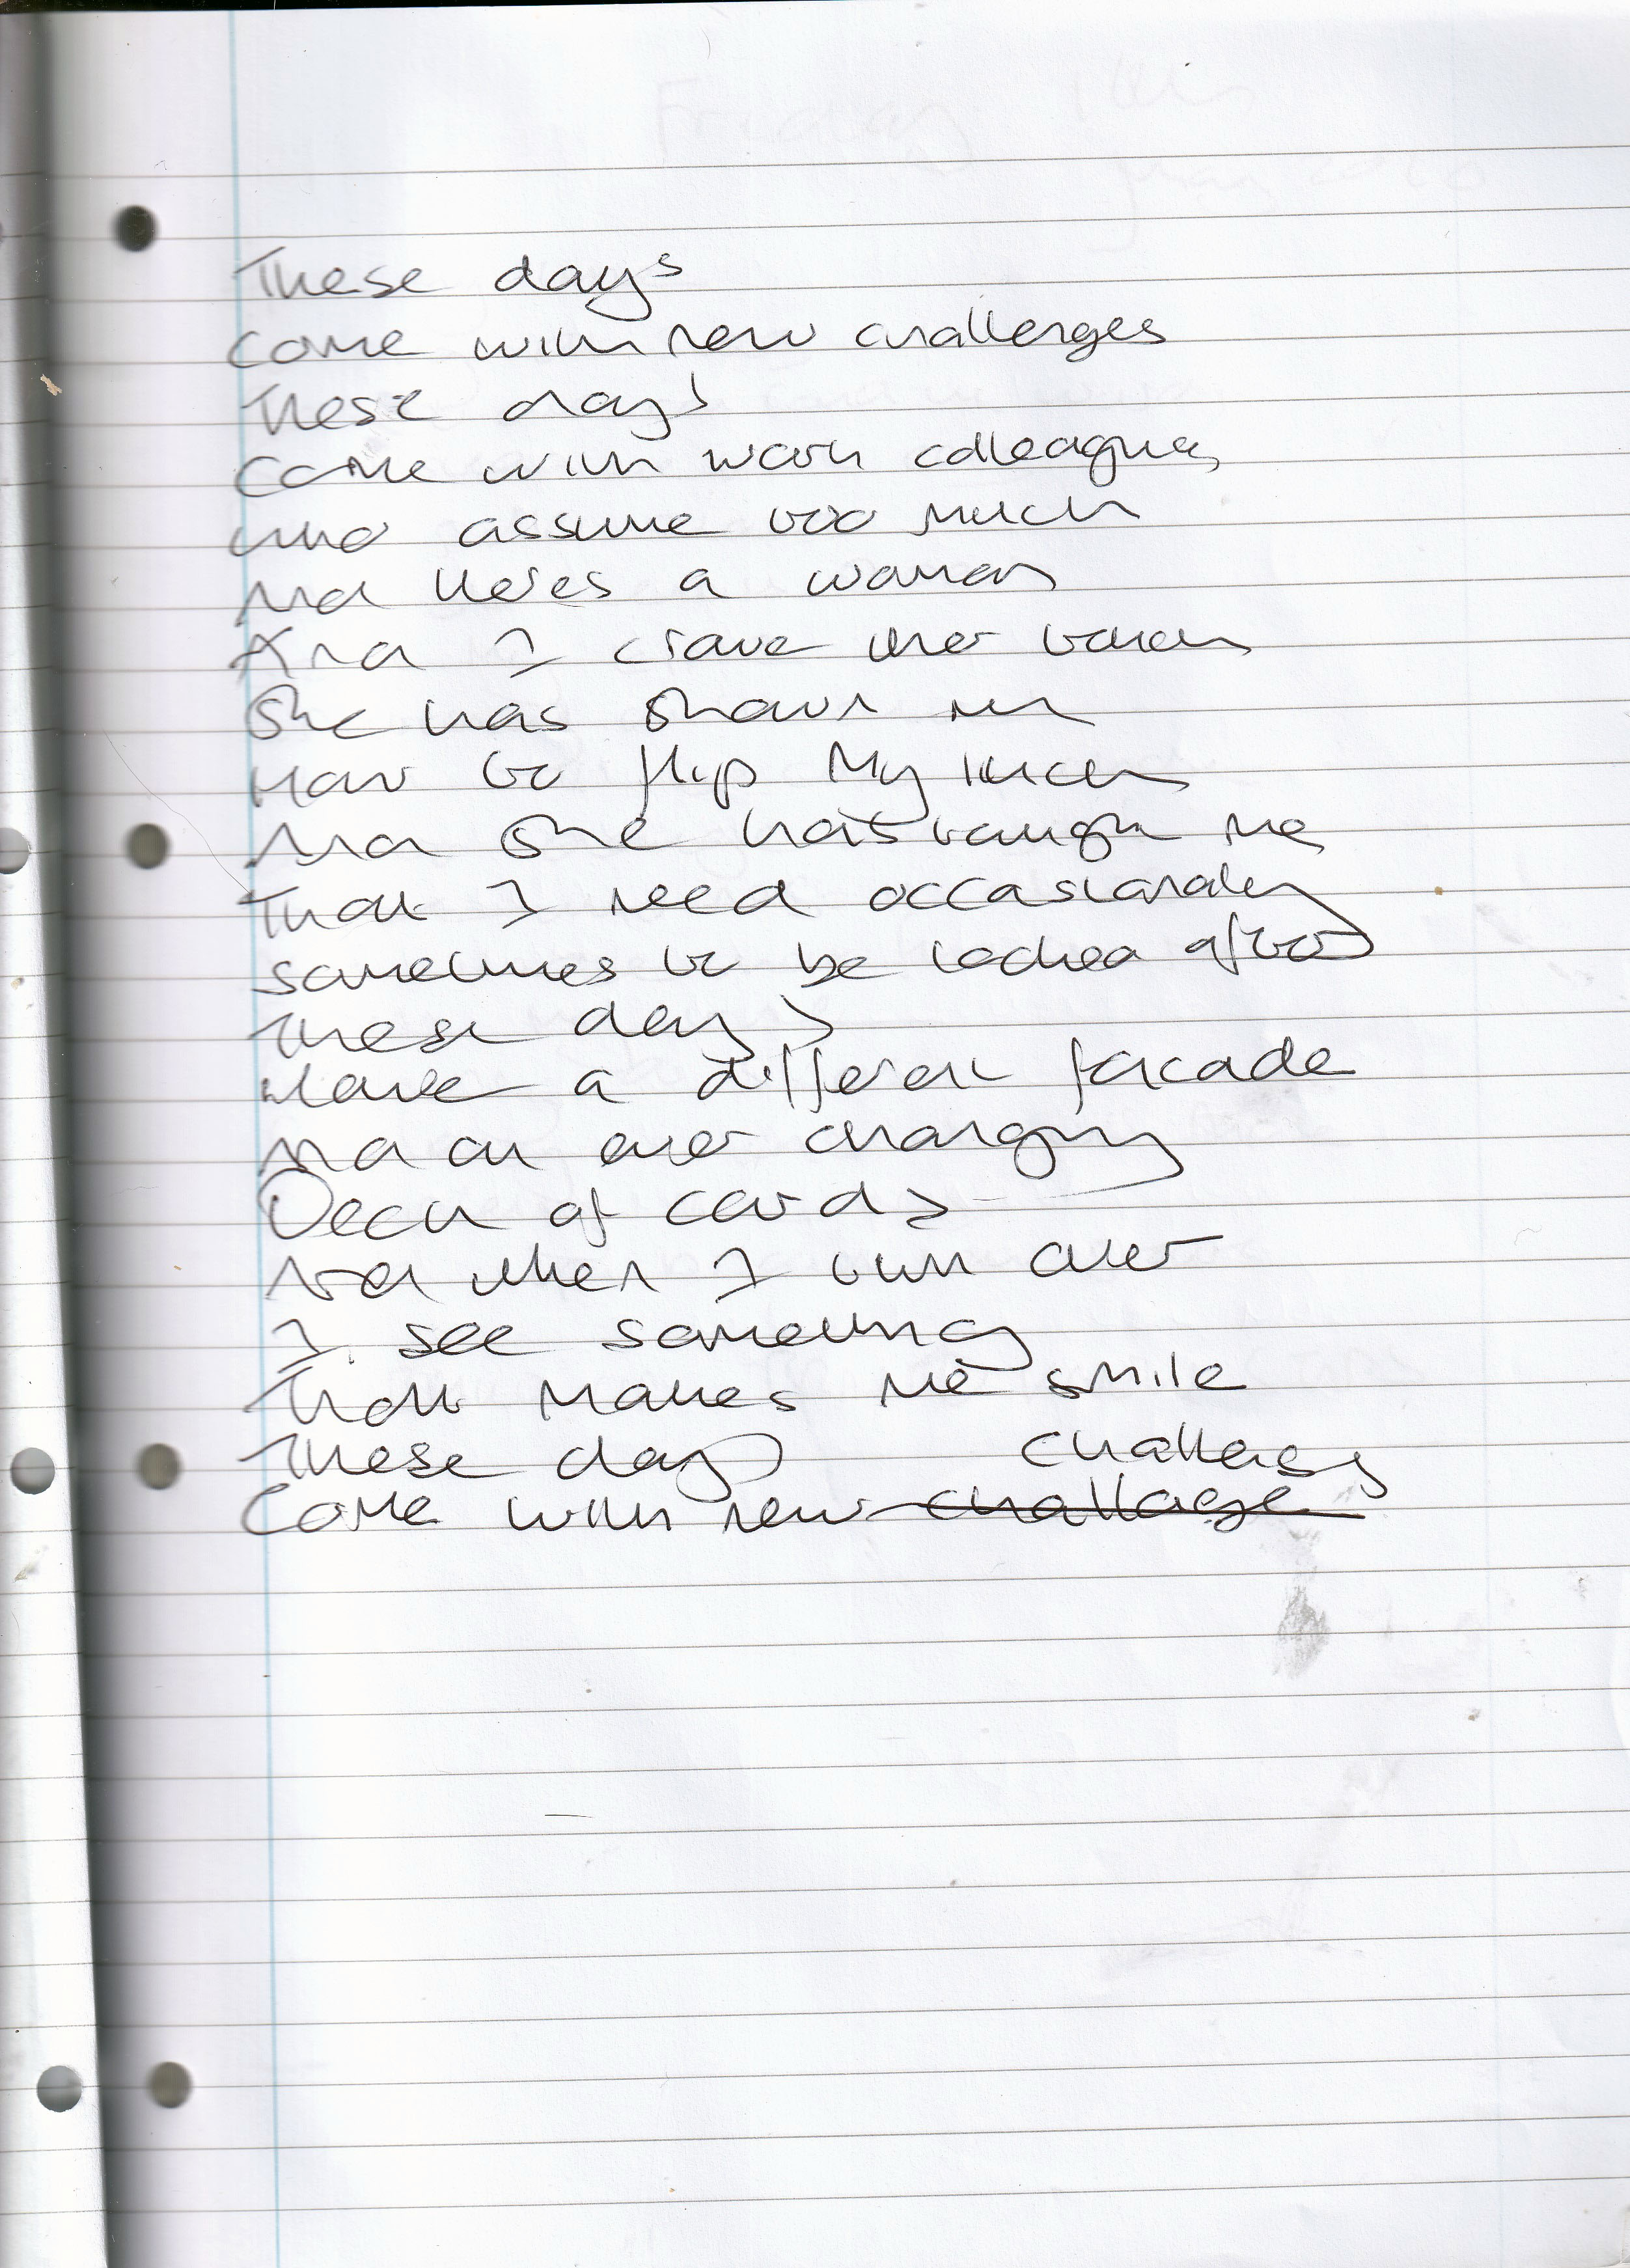 These days
Come with new challenges
These days
Come with work colleagues
who assume too much
And there's a woman
And I crave her touch
She has shown me
How to flip my luck
And she has taught me
That I need occasionally
sometimes to be looked after
These days
Have a different facade
And an ever changing
Deck of cards
And when I turn over
I see something
That makes me smile
These days
Come with new challenge challenges